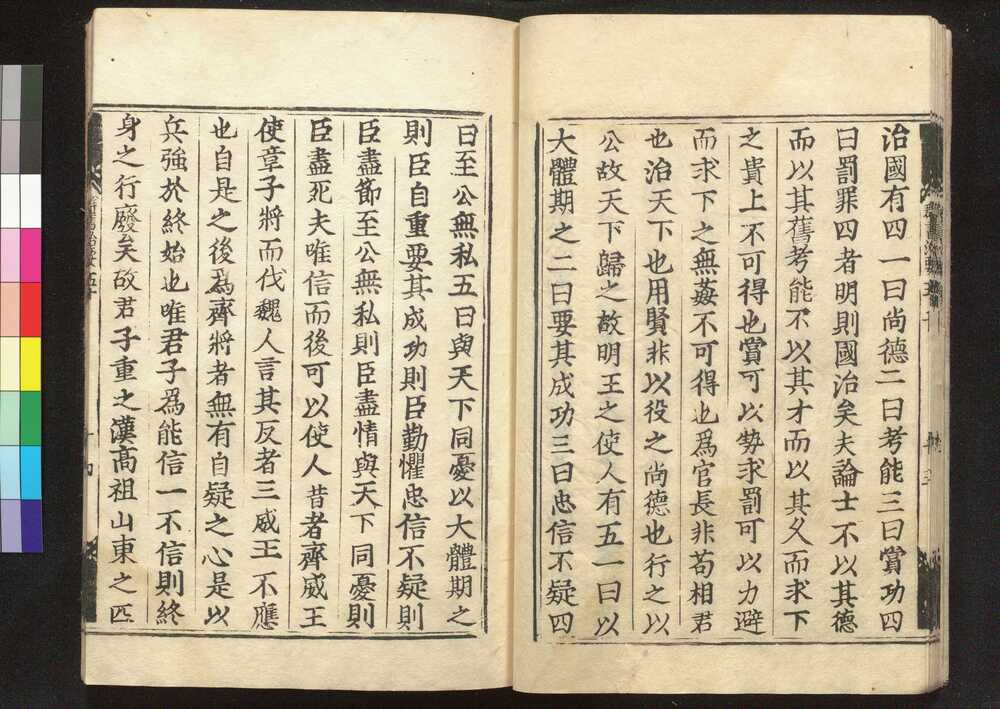 治國有四一曰尚德二曰考能三曰賞功四
曰罰罪四者明則國治矣夫論士不以其德
而以其舊考能不以其才而以其久而求下
之貴上不可得也賞可以勢求罰可以力避
而求下之無姦不可得也爲官長非苟相君
也治天下也用賢非以役之尚德也行之以
公故天下歸之故明王之使人有五一曰以
大體期之二曰要其成功三曰忠信不疑四
曰至公無私五曰與天下同憂以大體期之
則臣自重要其成功則臣勤懼忠信不疑則
臣盡節至公無私則臣盡情與天下同憂則
臣盡死夫唯信而後可以使人昔者齊威王
使章子將而伐魏人言其反者三威王不應
也自是之後爲齊將者無有自疑之心是以
兵強於終始也唯君子爲能信一不信則終
身之行廢矣故君子重之漢高祖山東之匹